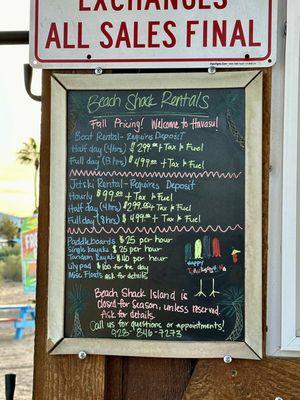 EXCHANGES
ALL SALES FINAL
Beach Shack Rentals
Fall Pricing! Welcome to Havasu!
Boat Rental- Requires Deposit
Half day (4hrs) $299.00 + Tax & Fuel
Full day (8 hrs) $499.00 + Tax & Fuel
Jetski Rental- Requires Deposit
Hourly $99.00 + Tax & Fuel
Half day (4hrs) $299.00 + Tax & Fuel
Full day (8hrs) $499.00 + Tax & Fuel
Paddleboards $25 per hour
Single Kayaks $25 per hour
Tandem Kayak $40 per hour
Lily pad $100 for the day
Misc Floats ask for details
Happy
Beach Shack Island is
closed for Season, unless reserved.
Ask for details
Call us for questions or appointments!
928-846-7273